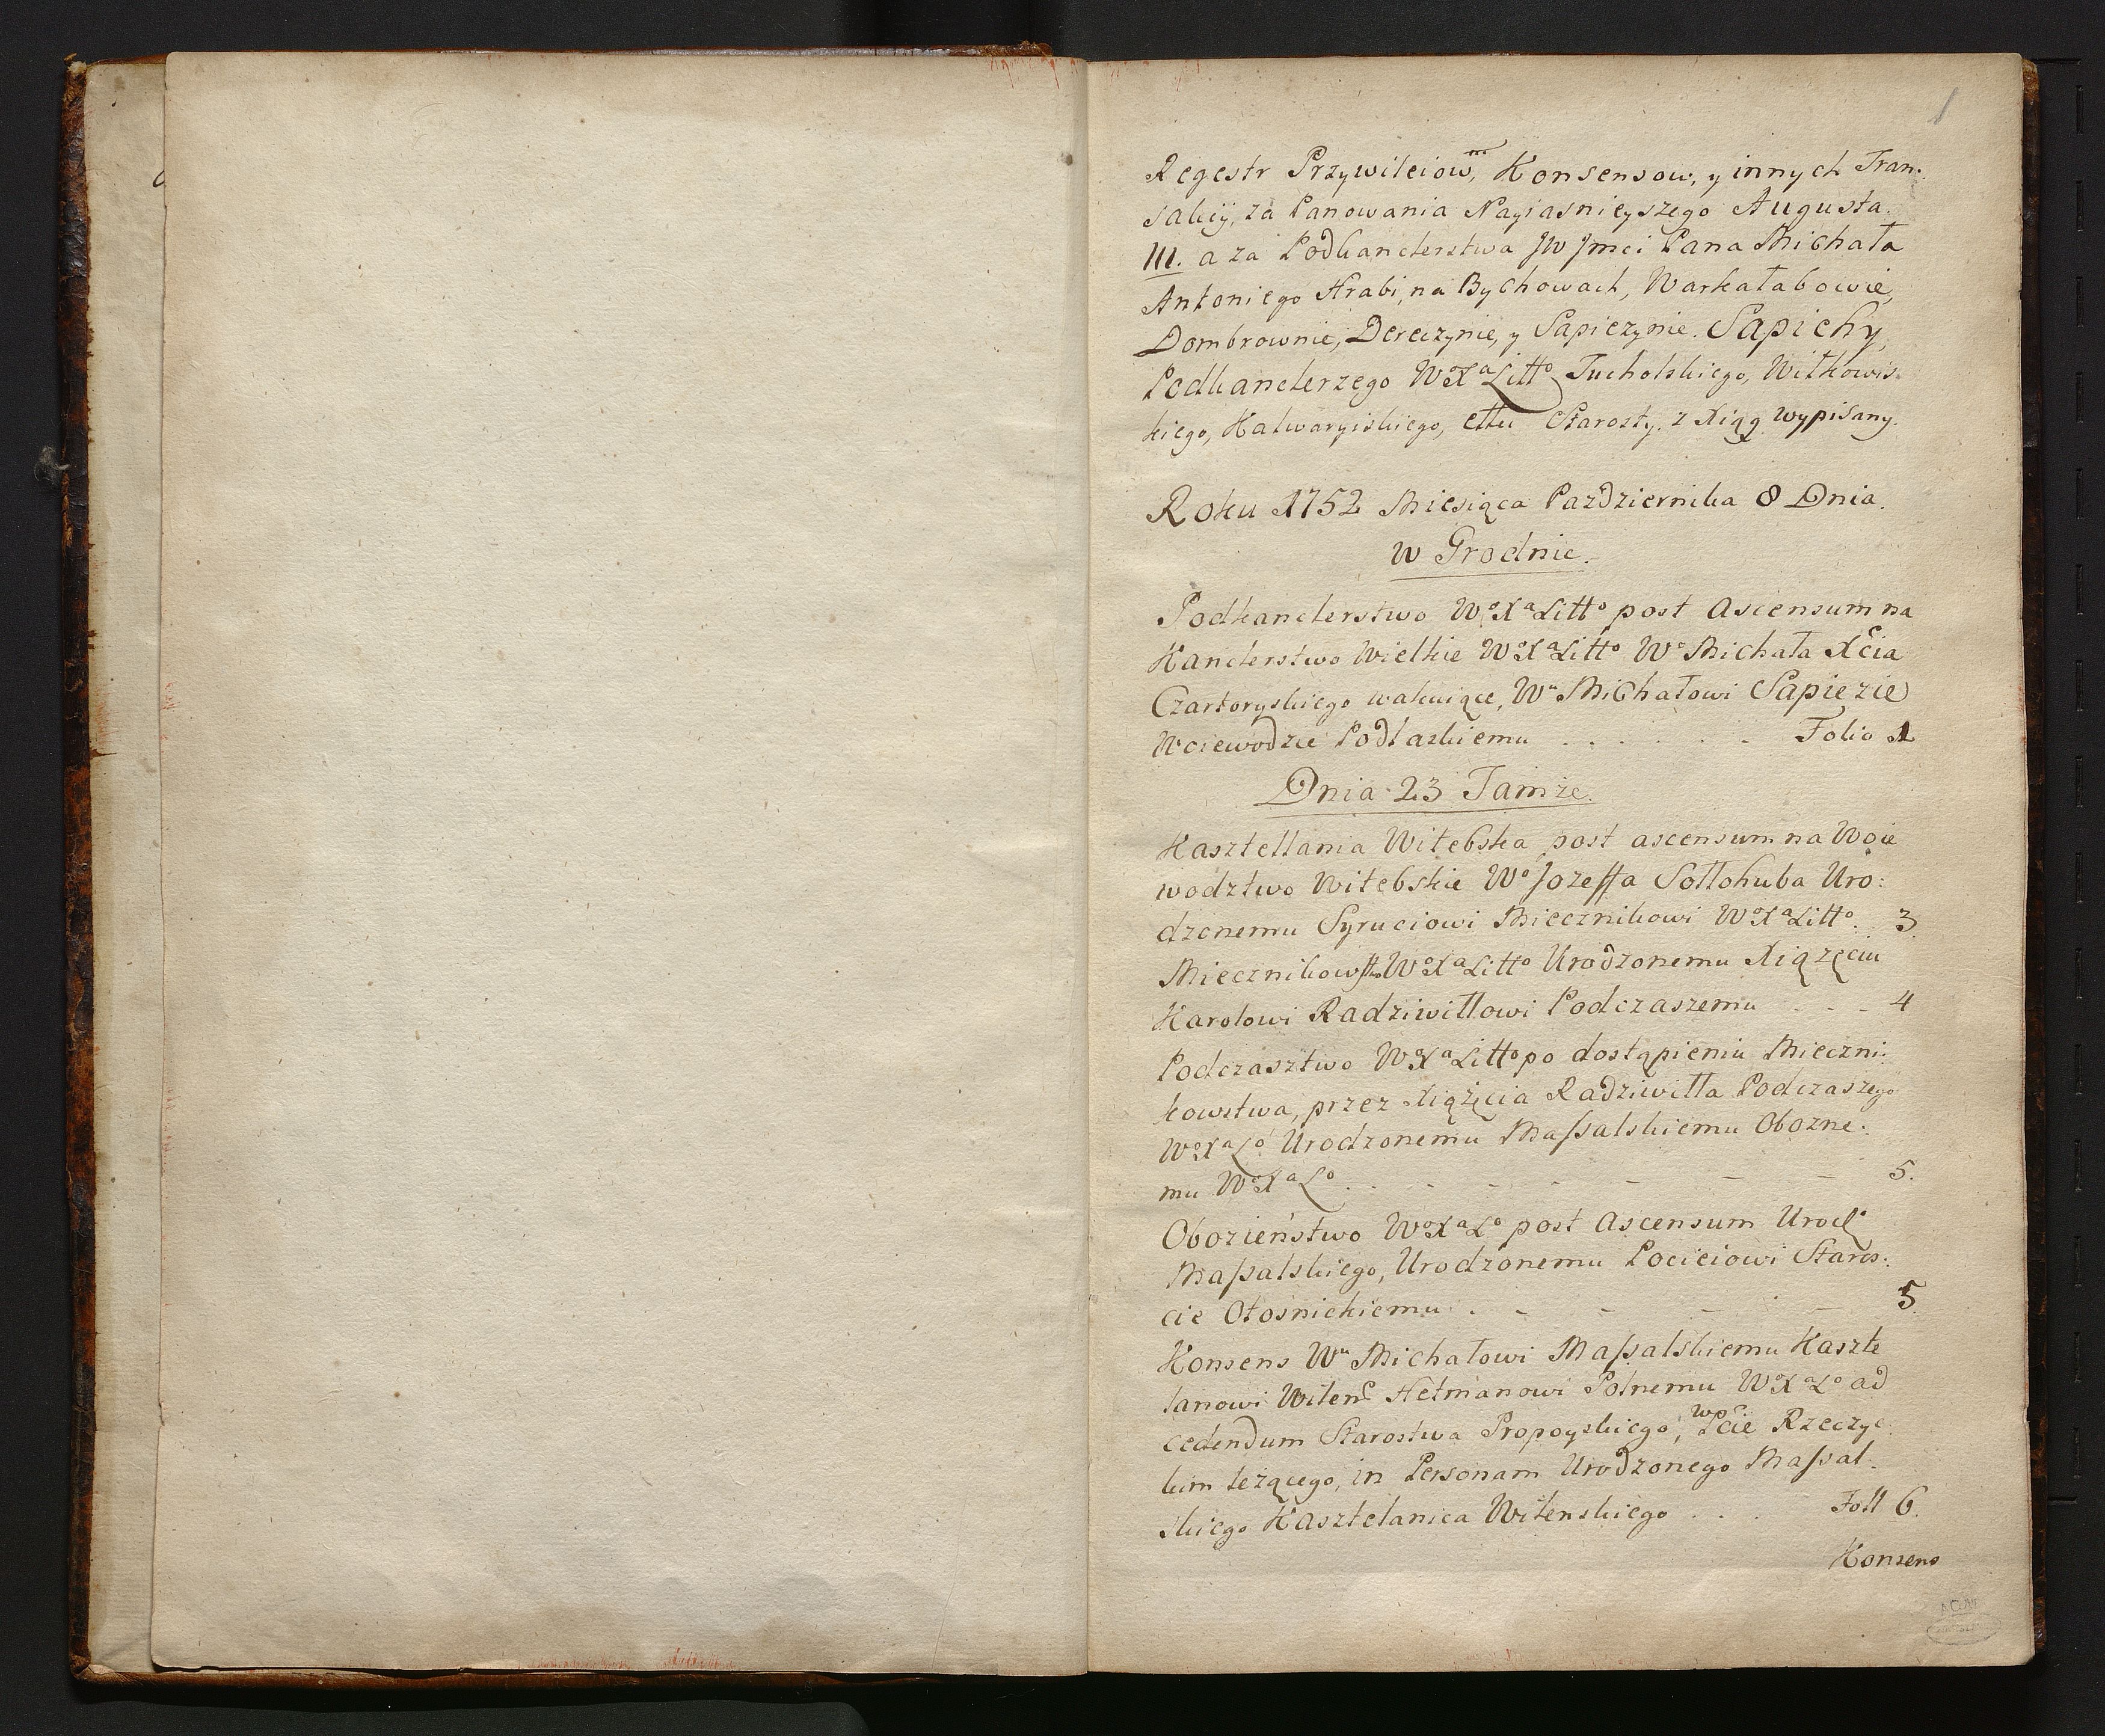 1
Regestr Przywileiow, Konsensow, y innych Tran:
sakcij, za Panowania Nayiasnieyszego Augusta
III. a za Podkanclerstwa JW Jmci Pana Michała
Antoniego Hrabi, na Bychowach, Warkałabowie,
Dombrownie, Dereczynie, y Sapieżynie. Sapiehy,
Podkanclerzego WoXa Litto Tucholskiego, Wiłkowis:
kiego, Kalwaryiskiego, ettu Starosty. z Xiąg wypisany.
Roku 1752 Miesiąca Pazdziernika 8 Dnia.
w Grodnie.
Podkanclerstwo WoXa Litto post Ascensum na
Kanclerstwo Wielkie WoXa Litto Wo Michała Xcia
Czartoryskiego wakuiące, Wu Michałowi Sapieżie
Woiewodzie Podlaskiemu . . . . . . Folio 1
Dnia 23 Tamże.
Kasztellania Witebska post ascensum na Woie
wodztwo Witebskie Wo Jozeffa Sołłohuba Uro:
dzonemu Syruciowi Miecznikowi WoXa Litto. 3.
Miecznikowstwo WoXa Litto Urodzonemu Xiążęciu
Karolowi Radziwiłłowi Podczaszemu . . . 4
Podczasztwo WoXa Litto po dostąpieniu Mieczni:
kowstwa, przez Xiążęcia Radziwiłła Podczaszego
WoXa Lo Urodzonemu Massalskiemu Obozne:
mu WoXa Lo . . - - - - - - 5.
Obozieństwo WoXa Lo post Ascensum Urodo
Massalskiego, Urodzonemu Pociciowi Staros:
cie Ołośnickiemu . . - - - - 5.
Konsens Wu Michałowi Massalskiemu Kaszte
lanowi Wilen Hetmanowi Polnemu WoXa Lo ad
cedendum Starostwa Propoyskiego, w Pcie Rzeczyc
kim leżącego, in Personam Urodzonego Massal:
skiego Kasztelanica Wilenskiego . . . Foll 6.
Konsens